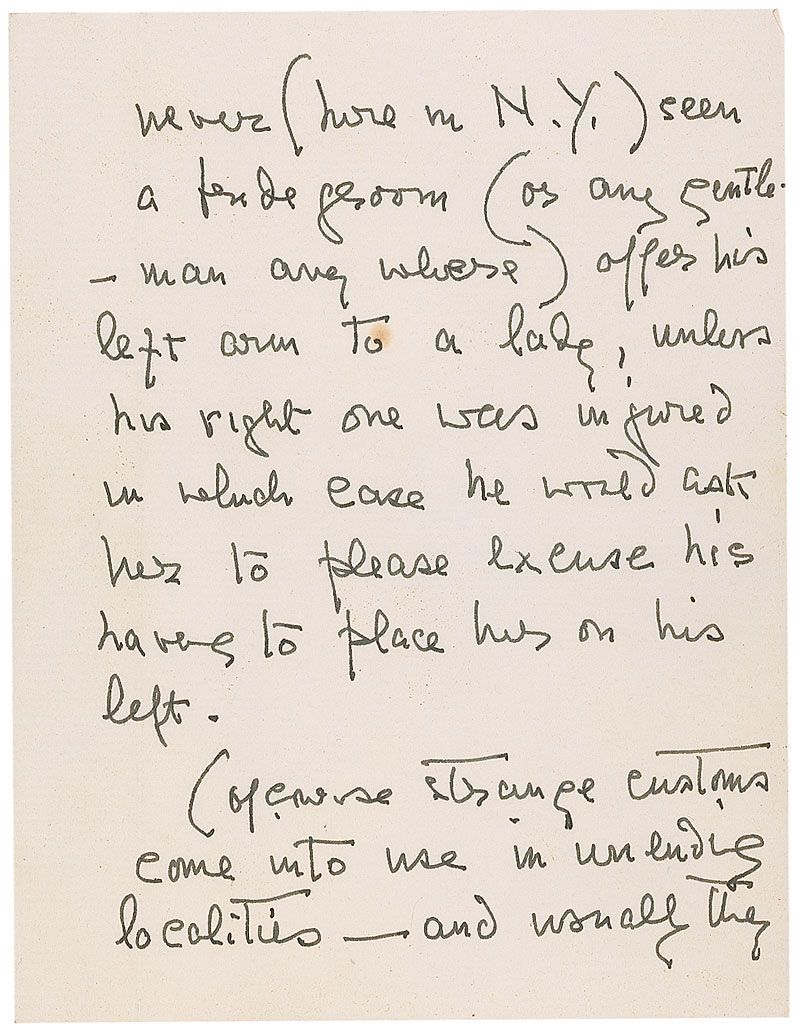 never (here in N.Y.) seen
a bridegroom (or any gentle-
- man any where) offer his
left arm to a lady, unless
his right one was injured
in which case he would ask
her to please excuse his
having to place her on his
left.
(ofcourse strange customs
come into use in unending
localities — and usually they